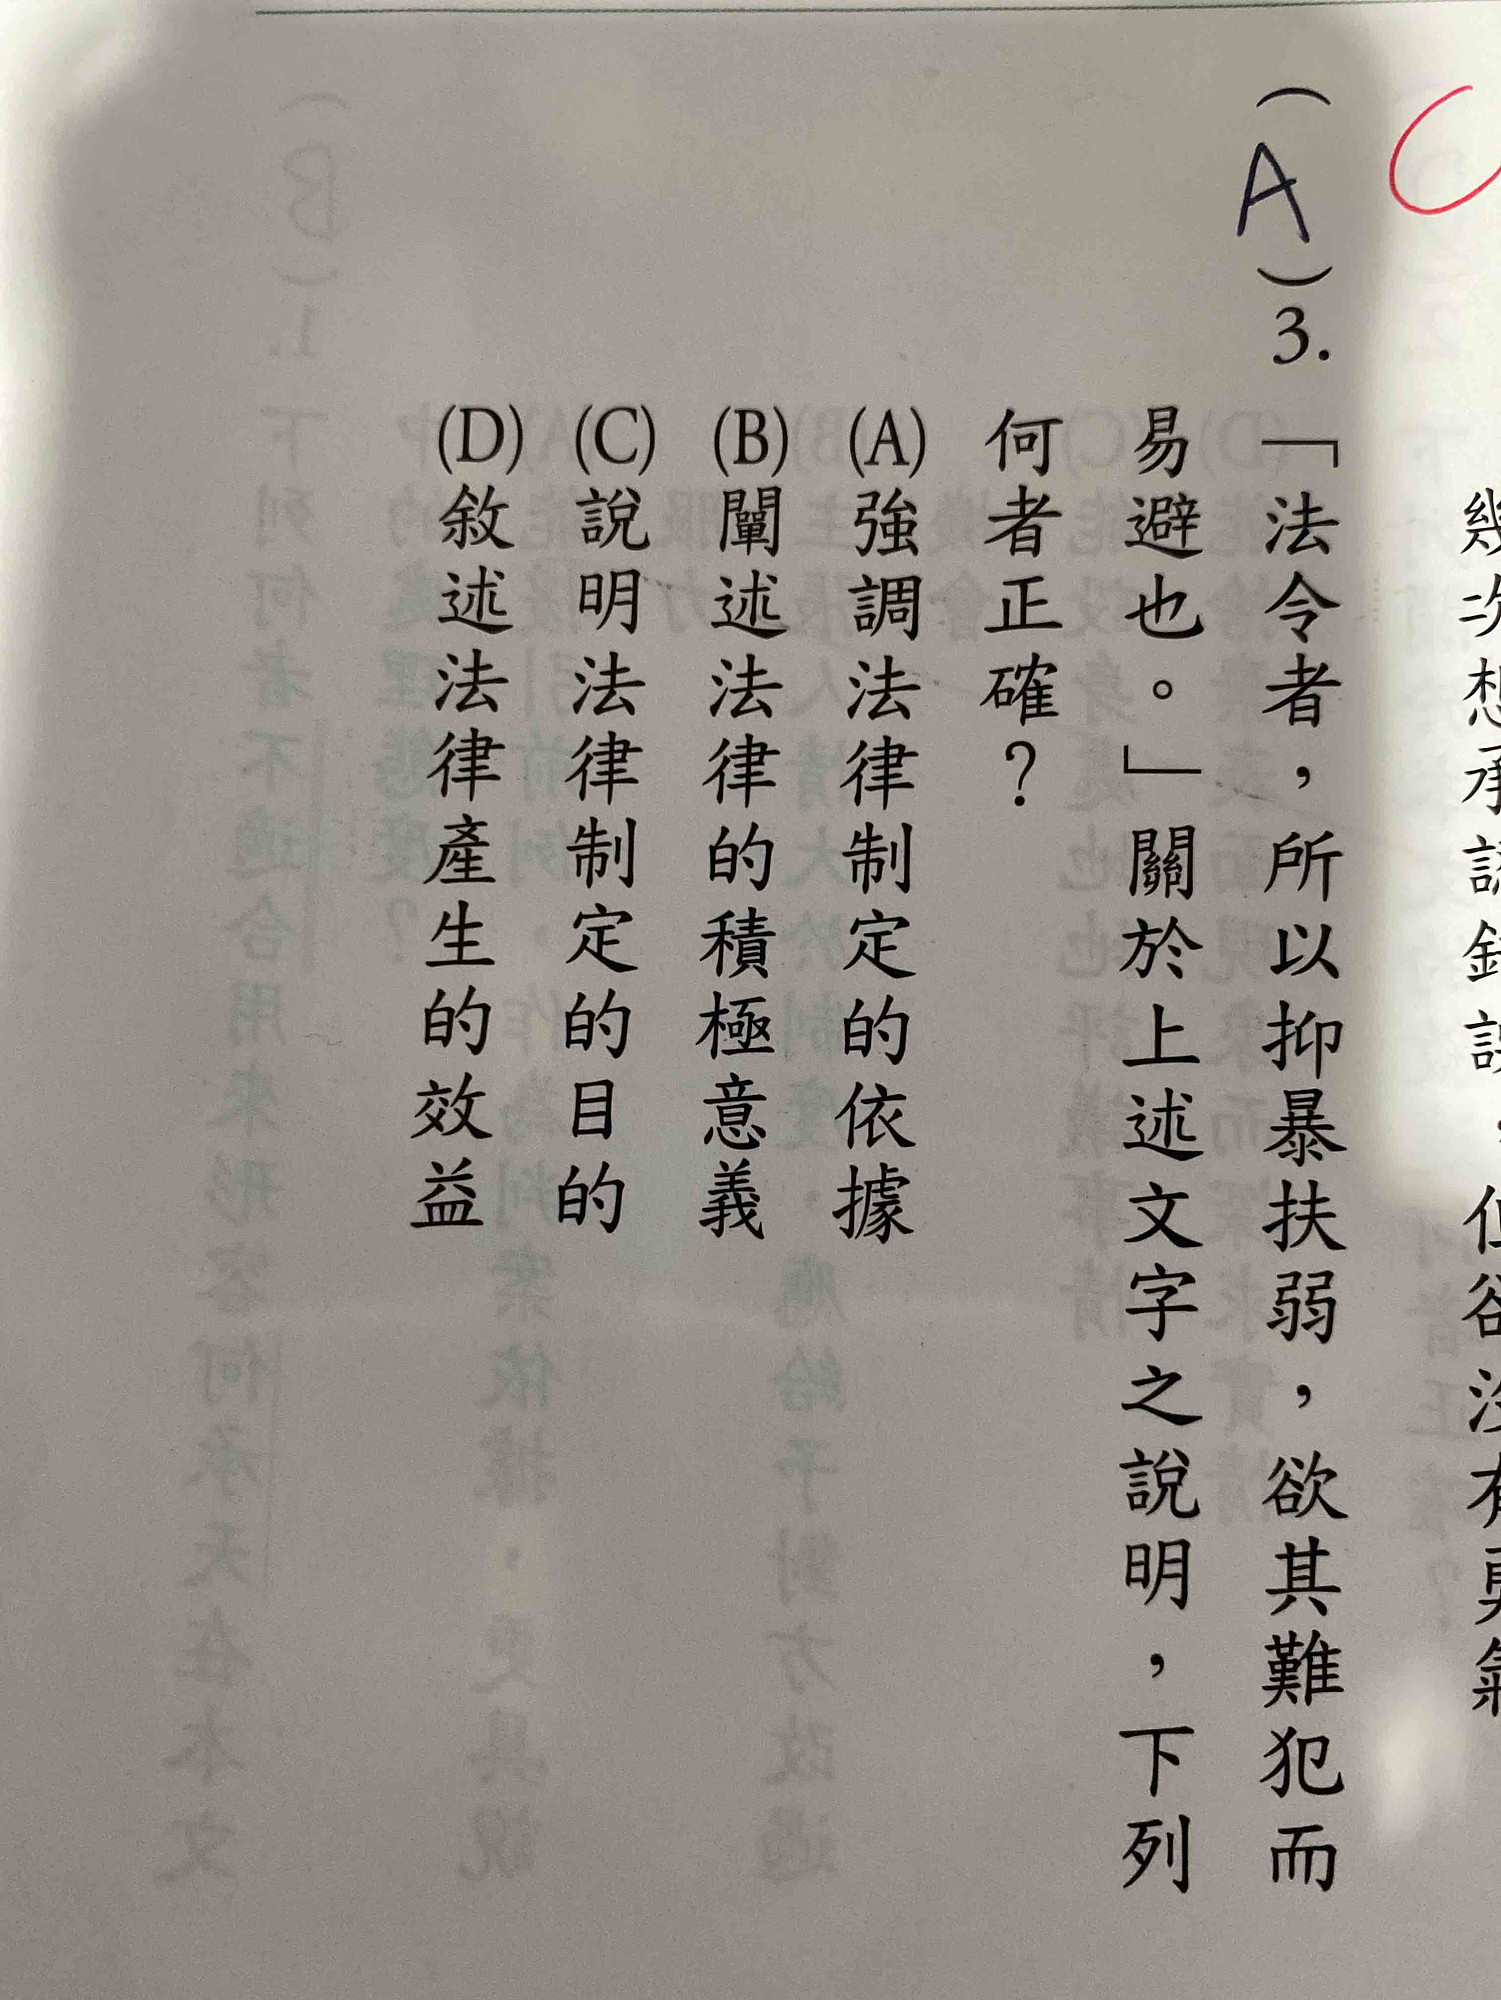 幾次想承認錯誤，但卻沒有勇氣
（A）3.「法令者，所以抑暴扶弱，欲其難犯而
易避也。」關於上述文字之說明，下列
何者正確？
(A)強調法律制定的依據
(B)闡述法律的積極意義
(C)說明法律制定的目的
(D)敘述法律產生的效益